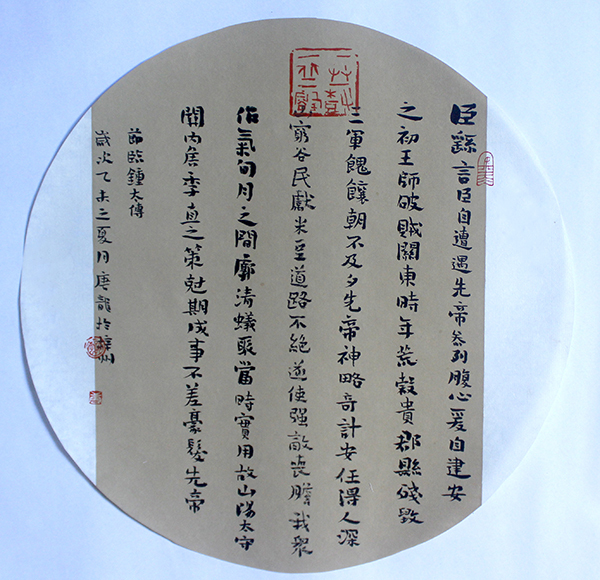 臣繇言臣自遭遇先帝忝列腹心爰自建安
之初王師破賊關東時年荒穀貴郡縣殘毀
三軍餽饟朝不及夕先帝神略奇計委任得人深
山窮谷民獻米豆道路不絕遂使强敵喪膽我衆
作氣旬月之間廓清蟻聚當時實用故山陽太守
關內侯季直之策尅期成事不差豪髮先帝
節臨鍾太傅
歲次乙未之夏月唐龍於州